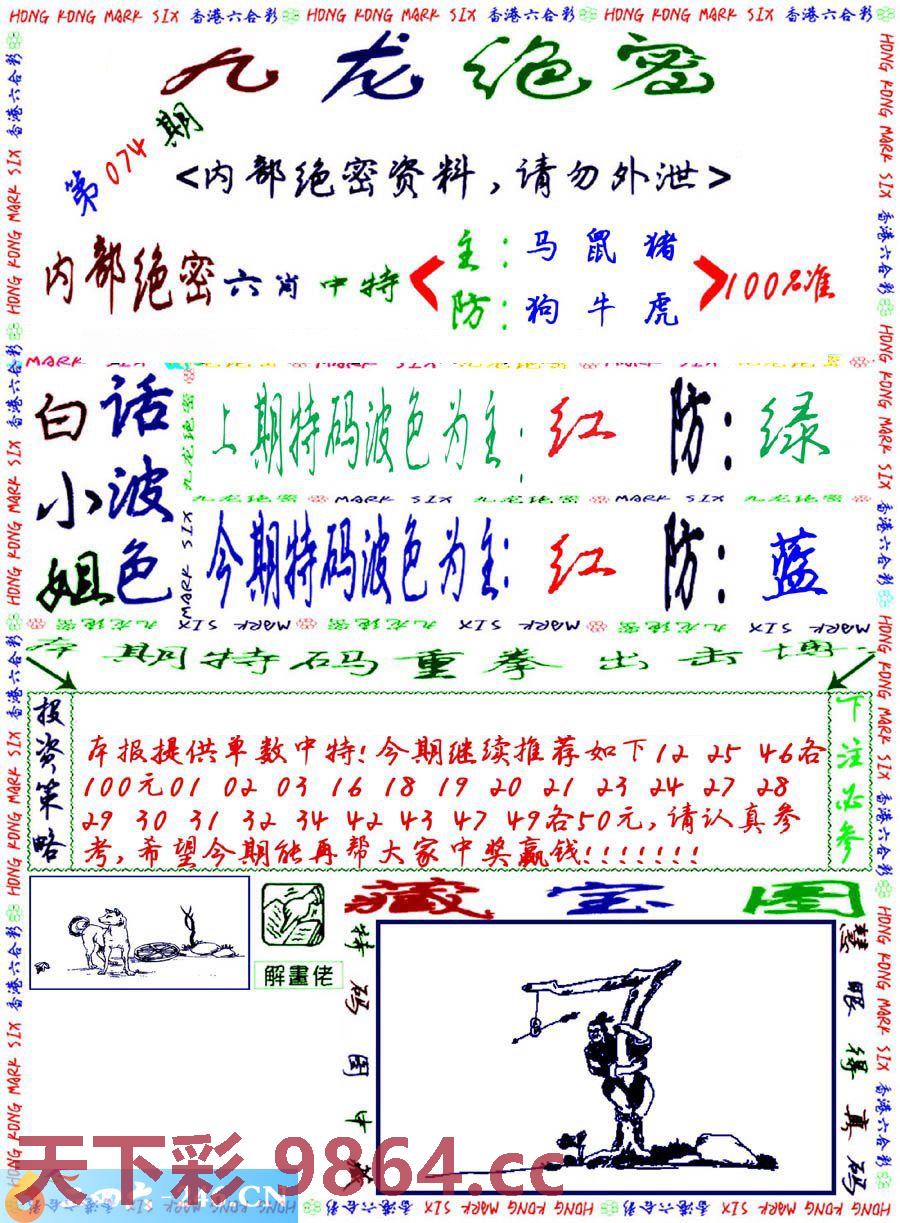 HONG KONG MARK SIX 香港六合彩 HONG KONG MARK SIX 香港六合彩 HONG KONG MARK SIX 香港六合彩
九龙绝密
第074期
<内部绝密资料,请勿外泄>
内部绝密六肖中特
主:马鼠猪
防:狗牛虎
100%准
白话小姐
波色
上期特码波色为主:红 防:绿
九龙绝密 MARK SIX 九龙绝密 MARK SIX 九龙绝密
今期特码波色为主:红 防:蓝
本期特码重拳出击博
投资策略
本报提供单数中特!今期继续推荐如下12 25 46各
100元01 02 03 16 18 19 20 21 23 24 27 28
29 30 31 32 34 42 43 47 49各50元,请认真参
考,希望今期能再帮大家中奖赢钱!!!!!!!
下注必参
藏宝图
解畫佬
特码图中藏
慧眼得真码
天下彩 9864.cc